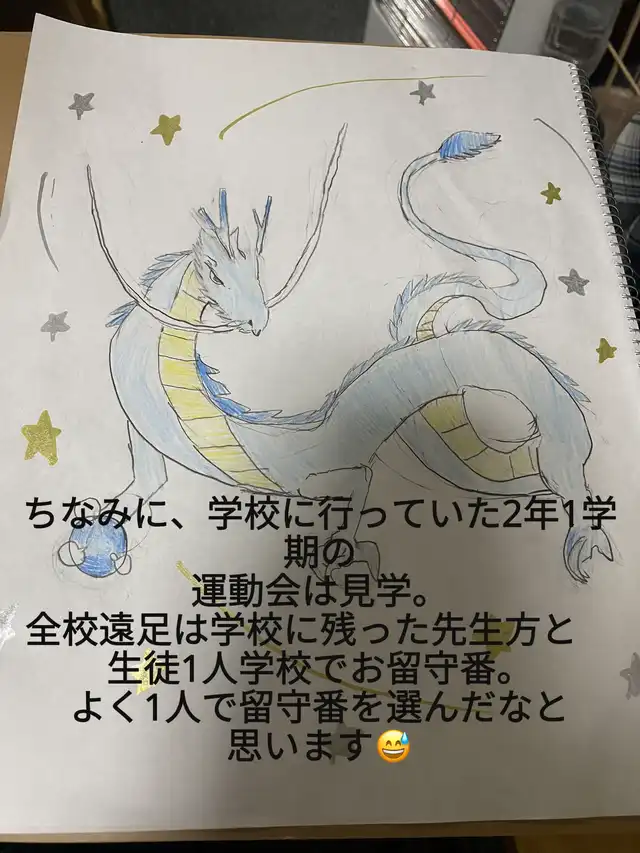 ちなみに、学校に行っていた2年1学
期の
運動会は見学。
全校遠足は学校に残った先生方と
生徒1人学校でお留守番。
よく1人で留守番を選んだなと
思います😅